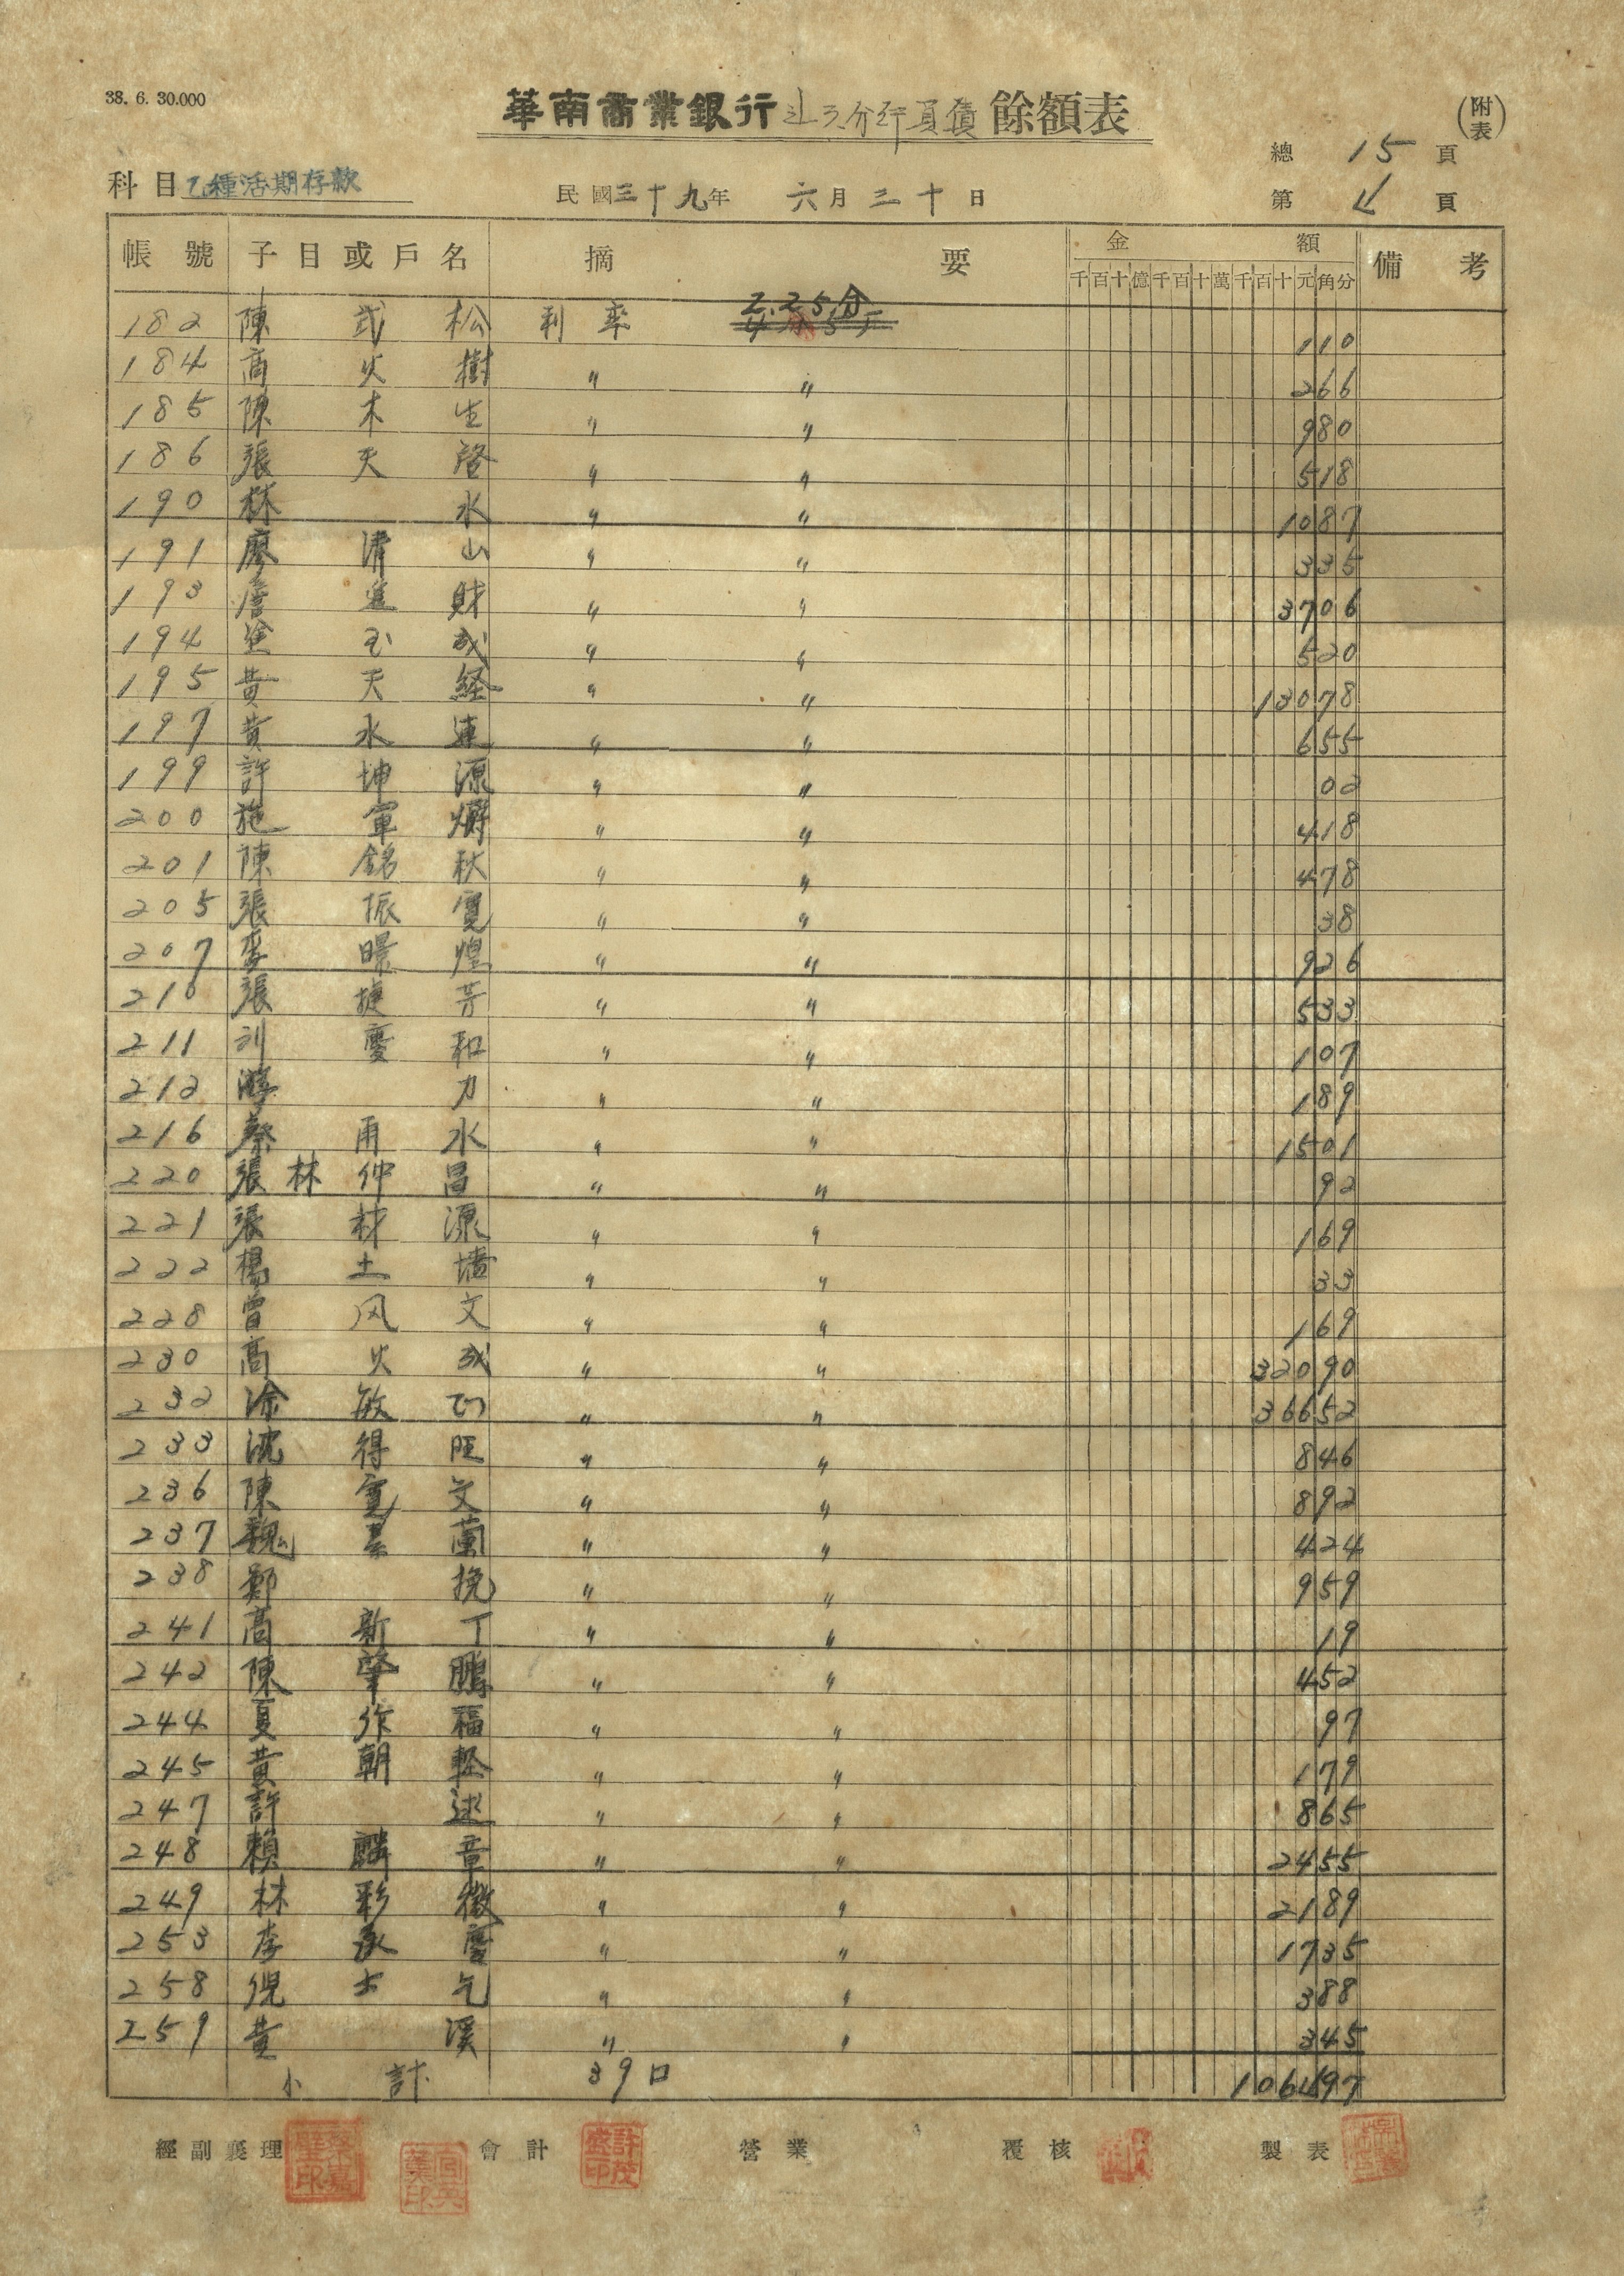 38. 6. 30.000
華南商業銀行斗六分行負債餘額表
(附表)
總 15 頁
科目 乙種活期存款
民國三十九年 六月三十日
第 4 頁
帳號 子目或戶名 摘要 金額 備考
千百十億千百十萬千百十元角分
2.25分
182 陳武松 利率 110
184 高火樹 〃 〃 266
185 陳木生 〃 〃 980
186 張天啓 〃 〃 518
190 林水 〃 〃 1087
191 廖清山 〃 〃 335
193 詹進財 〃 〃 3706
194 塗玉成 〃 〃 520
195 黃天経 〃 〃 13078
197 黃水連 〃 〃 655
199 許坤源 〃 〃 02
200 施軍爝 〃 〃 418
201 陳銘秋 〃 〃 478
205 張振寬 〃 〃 38
207 李暻煌 〃 〃 926
210 張捷芳 〃 〃 533
211 刘慶和 〃 〃 107
212 游力 〃 〃 189
216 蔡雨水 〃 〃 1501
220 張林仲昌 〃 〃 92
221 張林源 〃 〃 169
222 楊土墻 〃 〃 33
228 曾风文 〃 〃 169
230 高火成 〃 〃 32090
232 涂敏 〃 〃 36652
233 沈得旺 〃 〃 846
236 陳寬文 〃 〃 892
237 魏基蘭 〃 〃 424
238 鄭挽 〃 〃 959
241 高新丁 〃 〃 19
242 陳肇鵬 〃 〃 452
244 夏作福 〃 〃 97
245 黃朝軽 〃 〃 179
247 許述 〃 〃 865
248 賴麟章 〃 〃 2455
249 林彩徵 〃 〃 2189
253 李承慶 〃 〃 1735
258 倪士乞 〃 〃 388
259 黃溪 〃 〃 345
小計 39口 106497
經副襄理 會計 營業 覆核 製表
許茂盛印